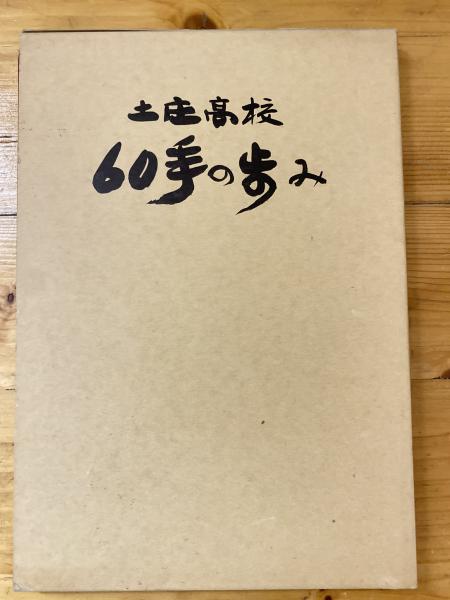 土庄高校
60年の歩み